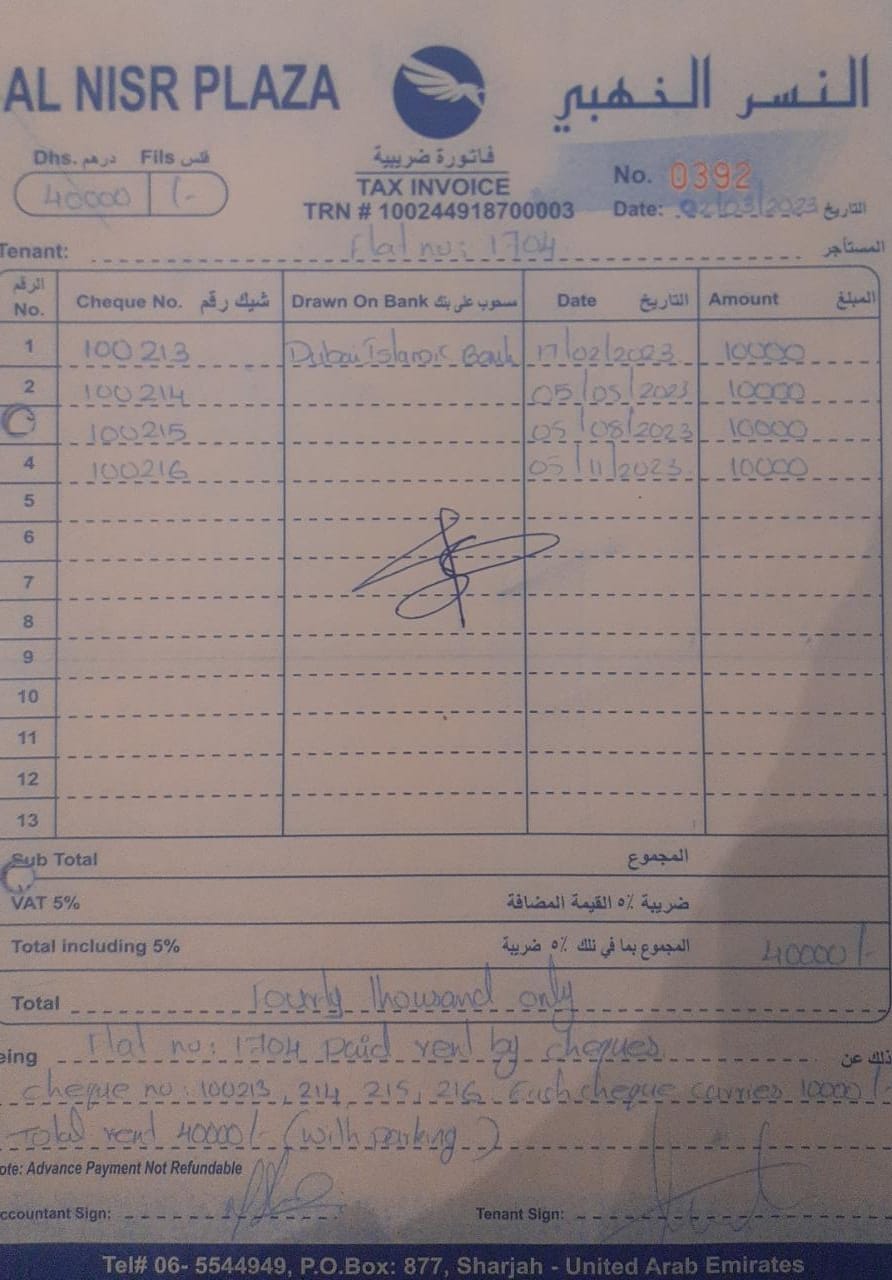 AL NISR PLAZA
النسر الذهبي
Dhs. درهم Fils فلس
40000 /-
فاتورة ضريبية
TAX INVOICE
TRN # 100244918700003
No. 0392
Date: 02/03/2023 التاريخ
Tenant: Flat no: 1704 المستأجر
الرقم No. Cheque No. شيك رقم Drawn On Bank مسحوب على بنك Date التاريخ Amount المبلغ
1 100213 Dubai Islamic Bank 17/02/2023 10000
2 100214 05/05/2023 10000
100215 05/08/2023 10000
4 100216 05/11/2023 10000
5
6
7
8
9
10
11
12
13
Sub Total المجموع
VAT 5% ضريبة ٥٪ القيمة المضافة
Total including 5% المجموع بما في ذلك ٥٪ ضريبة 40000/-
Total Fourty thousand only
eing Flat no: 1704 paid rent by cheques ذلك عن
cheque no: 100213, 214, 215, 216. Each cheque carries 10000/-
Total rent 40000/- (with parking)
ote: Advance Payment Not Refundable
ccountant Sign: Tenant Sign:
Tel# 06- 5544949, P.O.Box: 877, Sharjah - United Arab Emirates